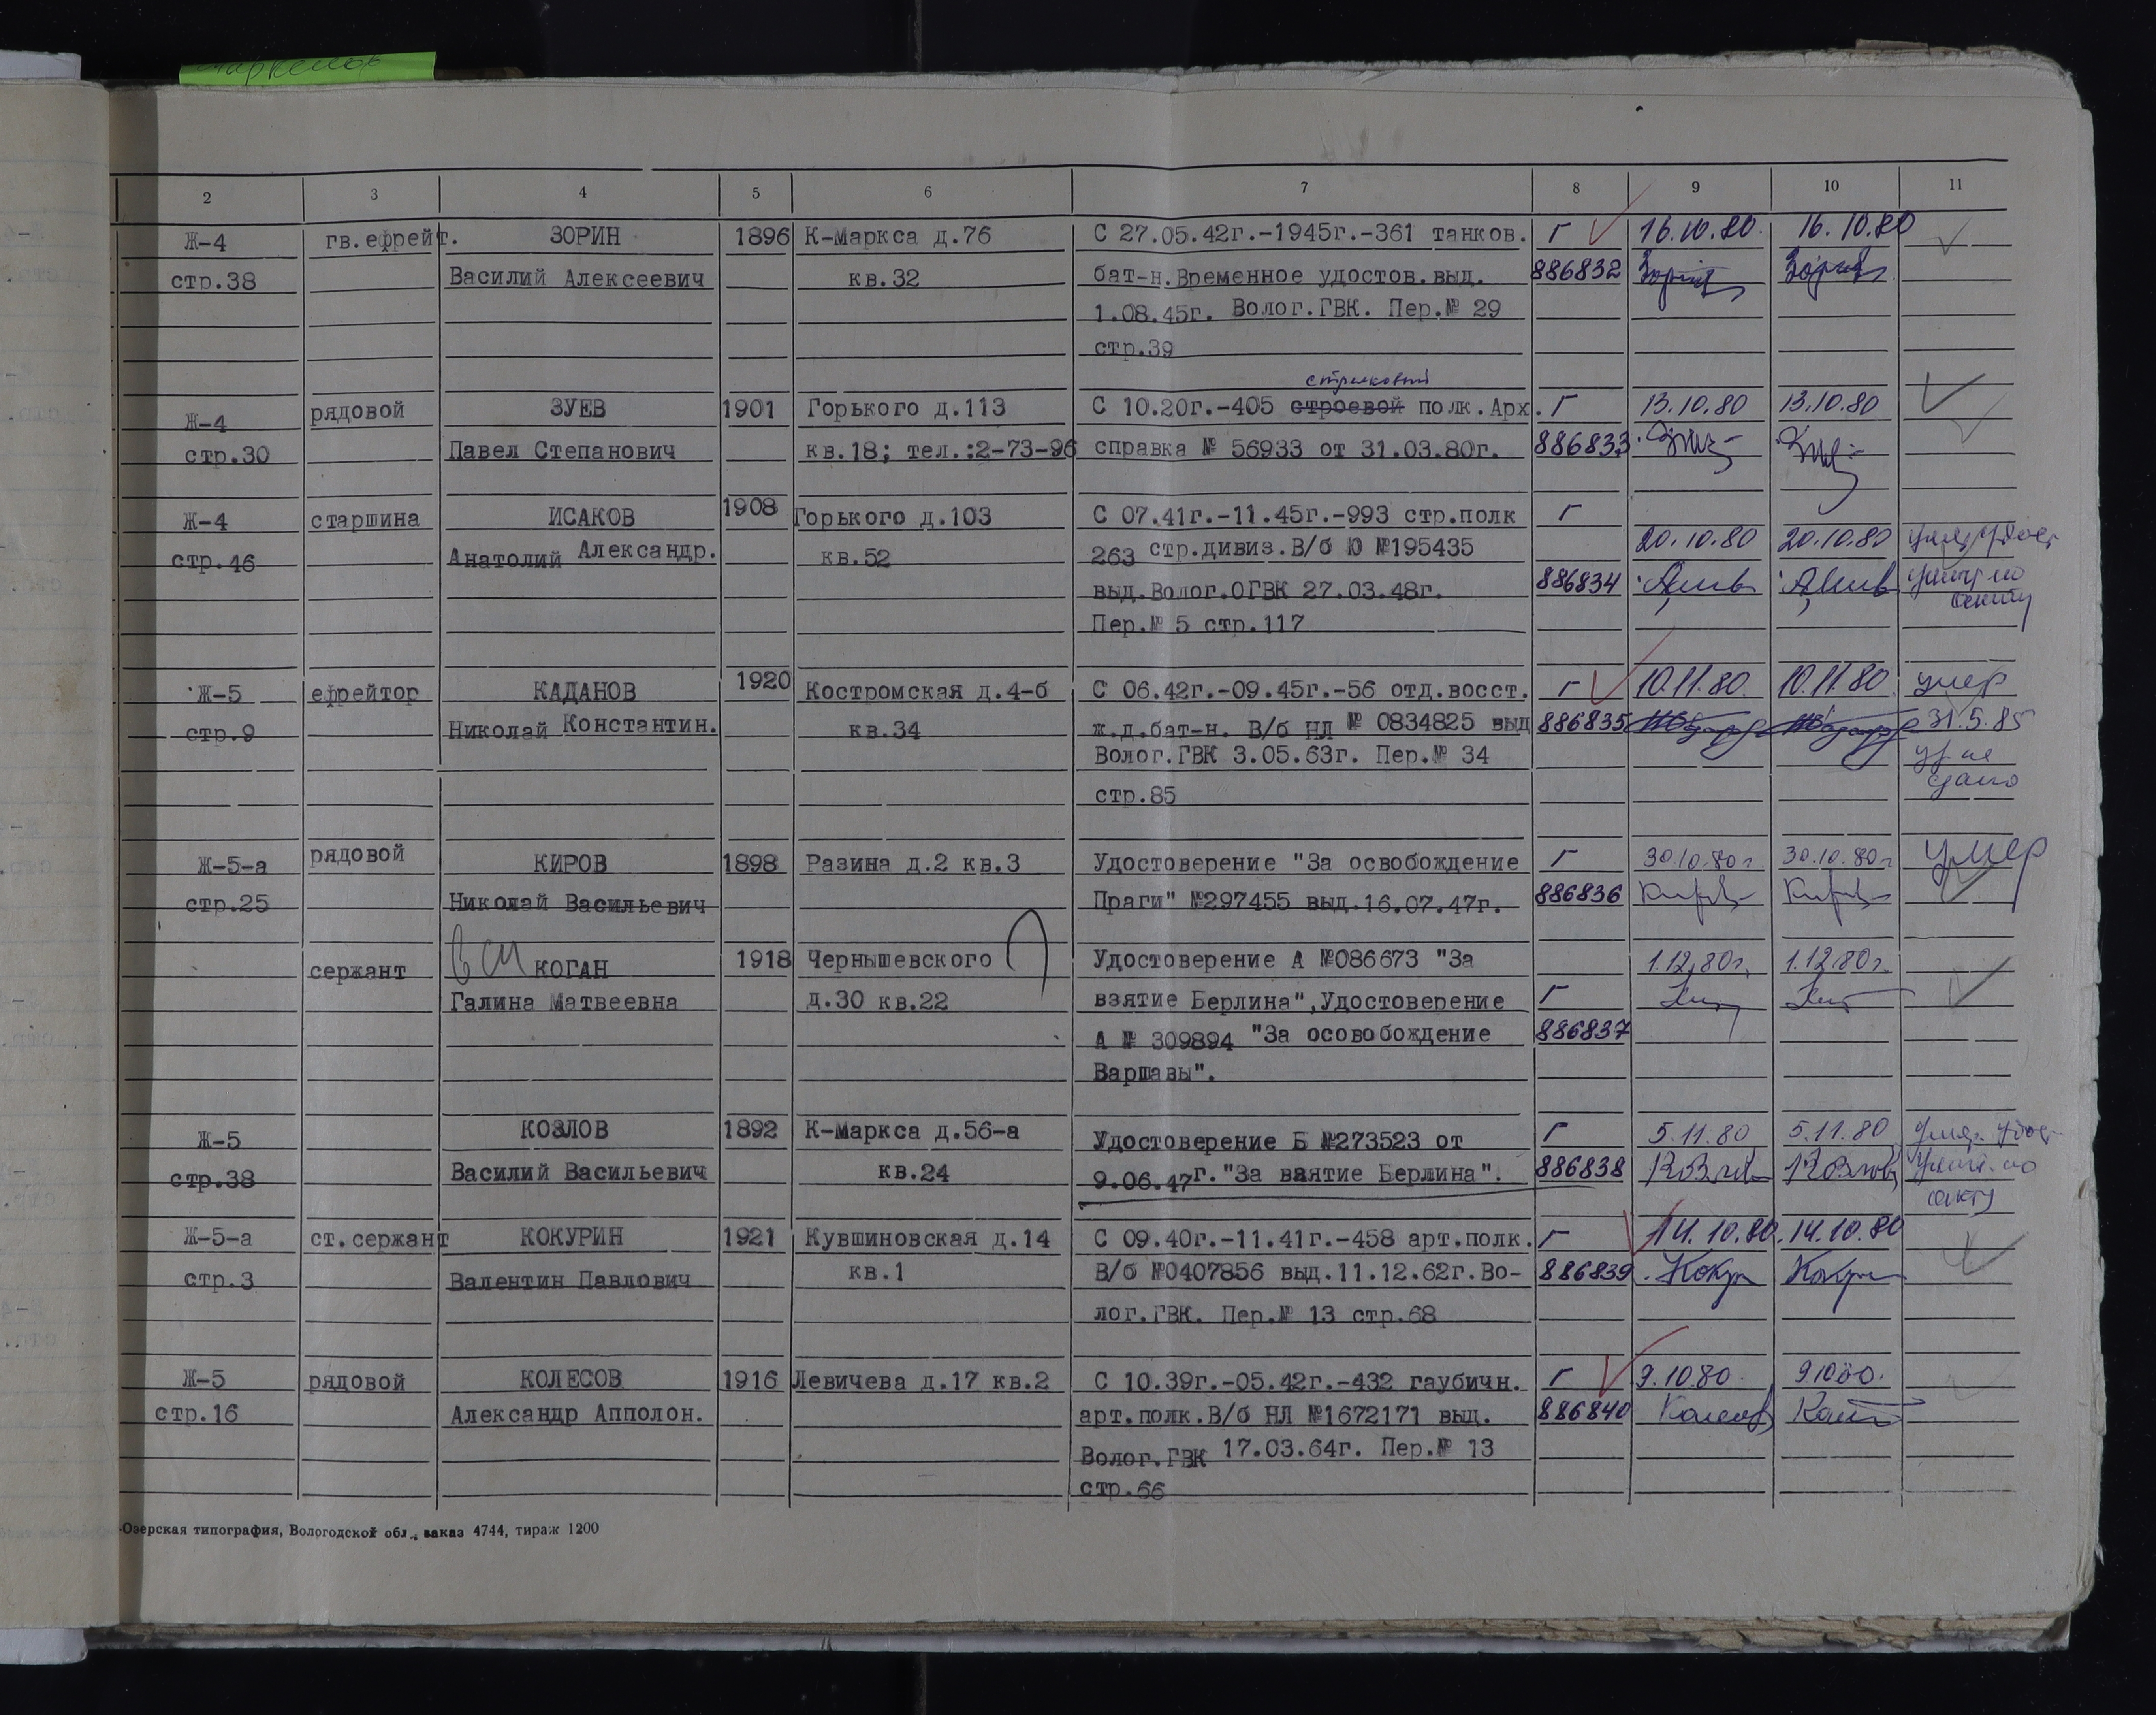 2 3 4 5 6 7 8 9 10 11
Ж-4 гв.ефрейт. ЗОРИН 1896 К-Маркса д.76 С 27.05.42г.-1945г.-361 танков. Г 16.10.80. 16.10.80
стр.38 Василий Алексеевич кв.32 бат-н.Временное удостов.выд. 886832
1.08.45г. Волог.ГВК. Пер.№ 29
стр.39
стрелковый
Ж-4 рядовой ЗУЕВ 1901 Горького д.113 С 10.20г.-405 строевой полк.Арх. Г 13.10.80 13.10.80
стр.30 Павел Степанович кв.18; тел.:2-73-96 справка № 56933 от 31.03.80г. 886833
Ж-4 старшина ИСАКОВ 1908 Горького д.103 С 07.41г.-11.45г.-993 стр.полк Г
стр.46 Анатолий Александр. кв.52 263 стр.дивиз.В/б Ю №195435 20.10.80 20.10.80
выд.Волог.ОГВК 27.03.48г. 886834
Пер.№ 5 стр.117 акту
Ж-5 ефрейтор КАДАНОВ 1920 Костромская д.4-б С 06.42г.-09.45г.-56 отд.восст. Г 10.11.80. 10.11.80. умер
стр.9 Николай Константин. кв.34 ж.д.бат-н. В/б НЛ № 0834825 выд 886835 31.5.85
Волог.ГВК 3.05.63г. Пер.№ 34
стр.85
Ж-5-а рядовой КИРОВ 1898 Разина д.2 кв.3 Удостоверение "За освобождение Г 30.10.80г. 30.10.80г. умер
стр.25 Николай Васильевич Праги" №297455 выд.16.07.47г. 886836
сержант КОГАН 1918 Чернышевского Удостоверение А №086673 "За 1.12.80г. 1.12.80г.
Галина Матвеевна д.30 кв.22 взятие Берлина",Удостоверение Г
А № 309894 "За осовобождение 886837
Варшавы".
Ж-5 КОЗЛОВ 1892 К-Маркса д.56-а Удостоверение Б №273523 от Г 5.11.80 5.11.80
стр.38 Василий Васильевич кв.24 9.06.47г."За взятие Берлина". 886838
акту
Ж-5-а ст.сержант КОКУРИН 1921 Кувшиновская д.14 С 09.40г.-11.41г.-458 арт.полк. Г 14.10.80. 14.10.80
стр.3 Валентин Павлович кв.1 В/б №0407856 выд.11.12.62г.Во- 886839
лог.ГВК. Пер.№ 13 стр.68
Ж-5 рядовой КОЛЕСОВ 1916 Левичева д.17 кв.2 С 10.39г.-05.42г.-432 гаубичн. Г 9.10.80. 9.10.80.
стр.16 Александр Апполон. арт.полк.В/б НЛ №1672171 выд. 886840
Волог.ГВК 17.03.64г. Пер.№ 13
стр.66
Озерская типография, Вологодской обл., заказ 4744, тираж 1200